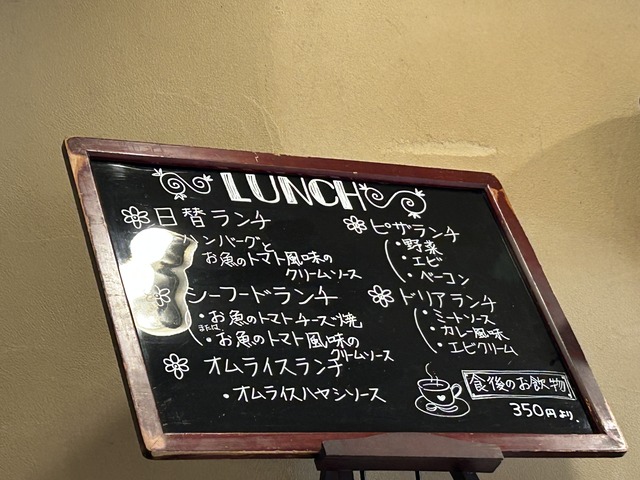 LUNCH
日替ランチ
ハンバーグと
お魚のトマト風味の
クリームソース
シーフードランチ
・お魚のトマトチーズ焼
または
・お魚のトマト風味の
クリームソース
オムライスランチ
・オムライスハヤシソース
ピザランチ
・野菜
・エビ
・ベーコン
ドリアランチ
・ミートソース
・カレー風味
・エビクリーム
食後のお飲物
350円より.